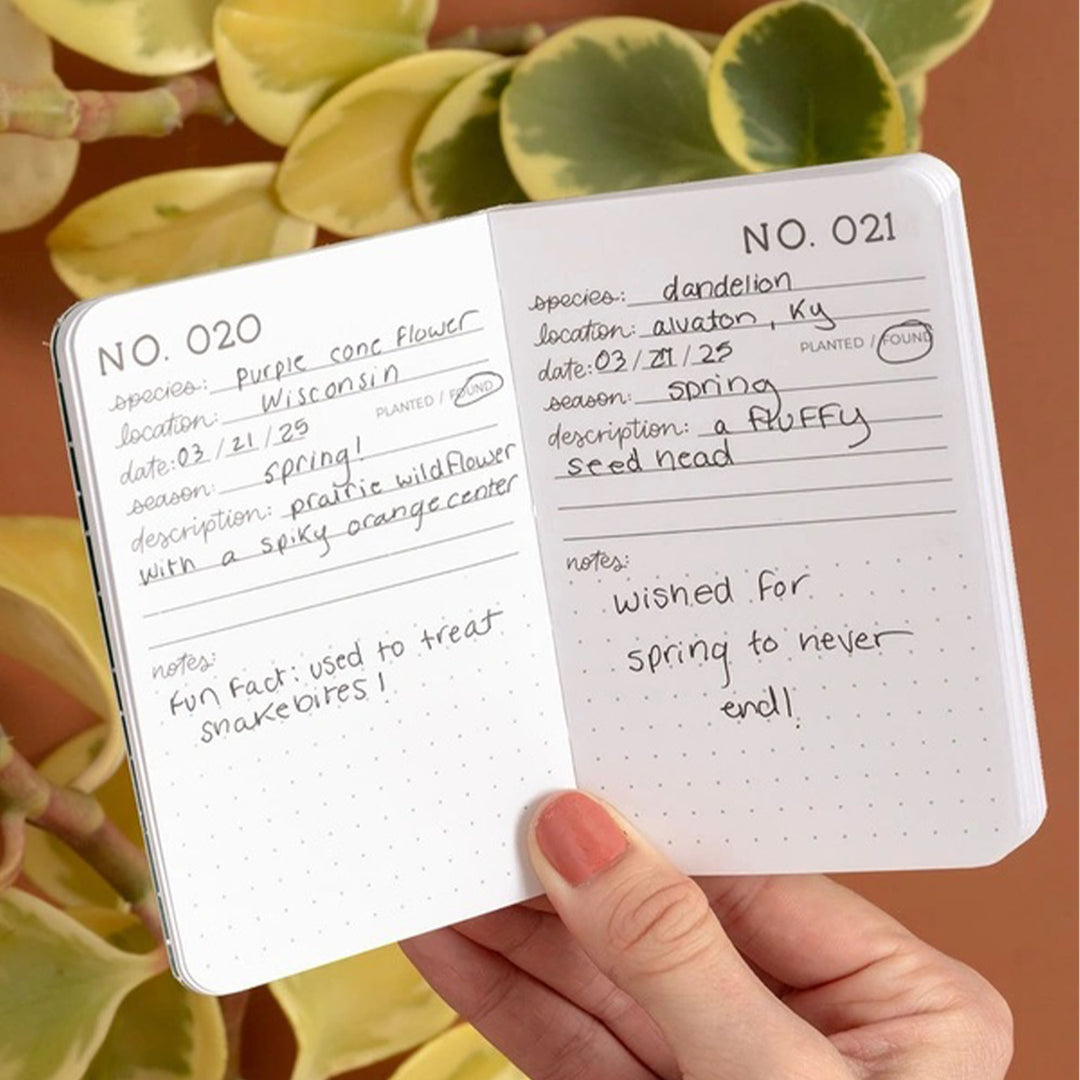 NO. 020
species: purple cone flower
location: Wisconsin
date: 03 / 21 / 25 PLANTED / FOUND
season: spring!
description: prairie wildflower
with a spiky orange center
notes:
fun fact: used to treat
snakebites!
NO. 021
species: dandelion
location: alvaton, Ky
date: 03 / 21 / 25 PLANTED / FOUND
season: spring
description: a fluffy
seed head
notes:
wished for
spring to never
end!